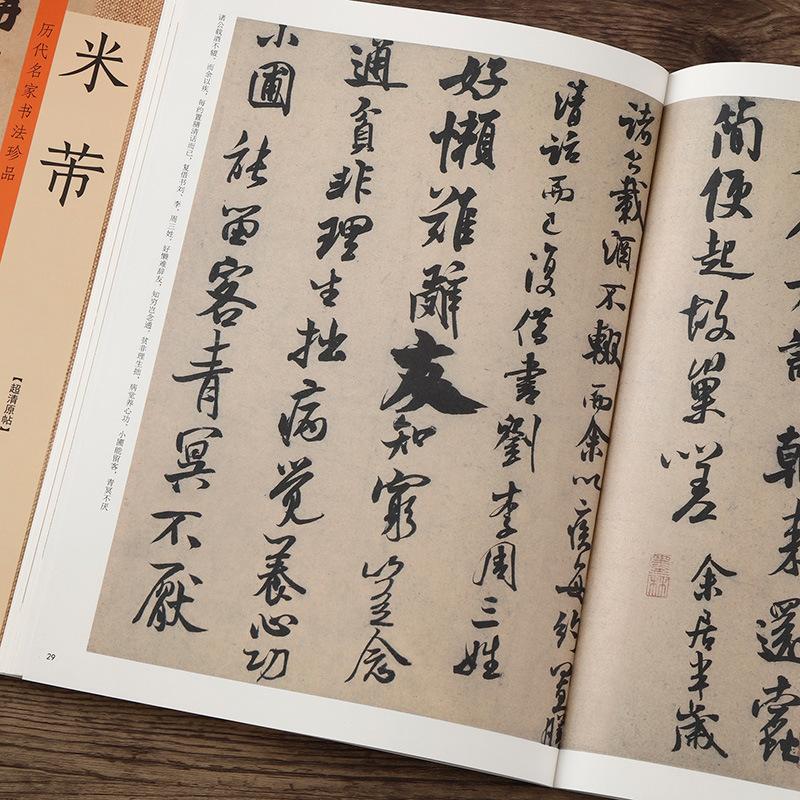 米芾
历代名家书法珍品
【超清原帖】
不譁朝来還蠹
簡便起故巢嗟 余居半歲
諸公載酒不輟而余以疾每約置膳
清話而已復借書劉李周三姓
好懶難辭友知窮豈念
通貧非理生拙病覺養心功
小圃能留客青冥不厭
诸公载酒不辍，而余以疾，每约置膳清话而已；复借书刘、李、周三姓。好懒难辞友，知穷岂念通；贫非理生拙，病觉养心功；小圃能留客，青冥不厌
29